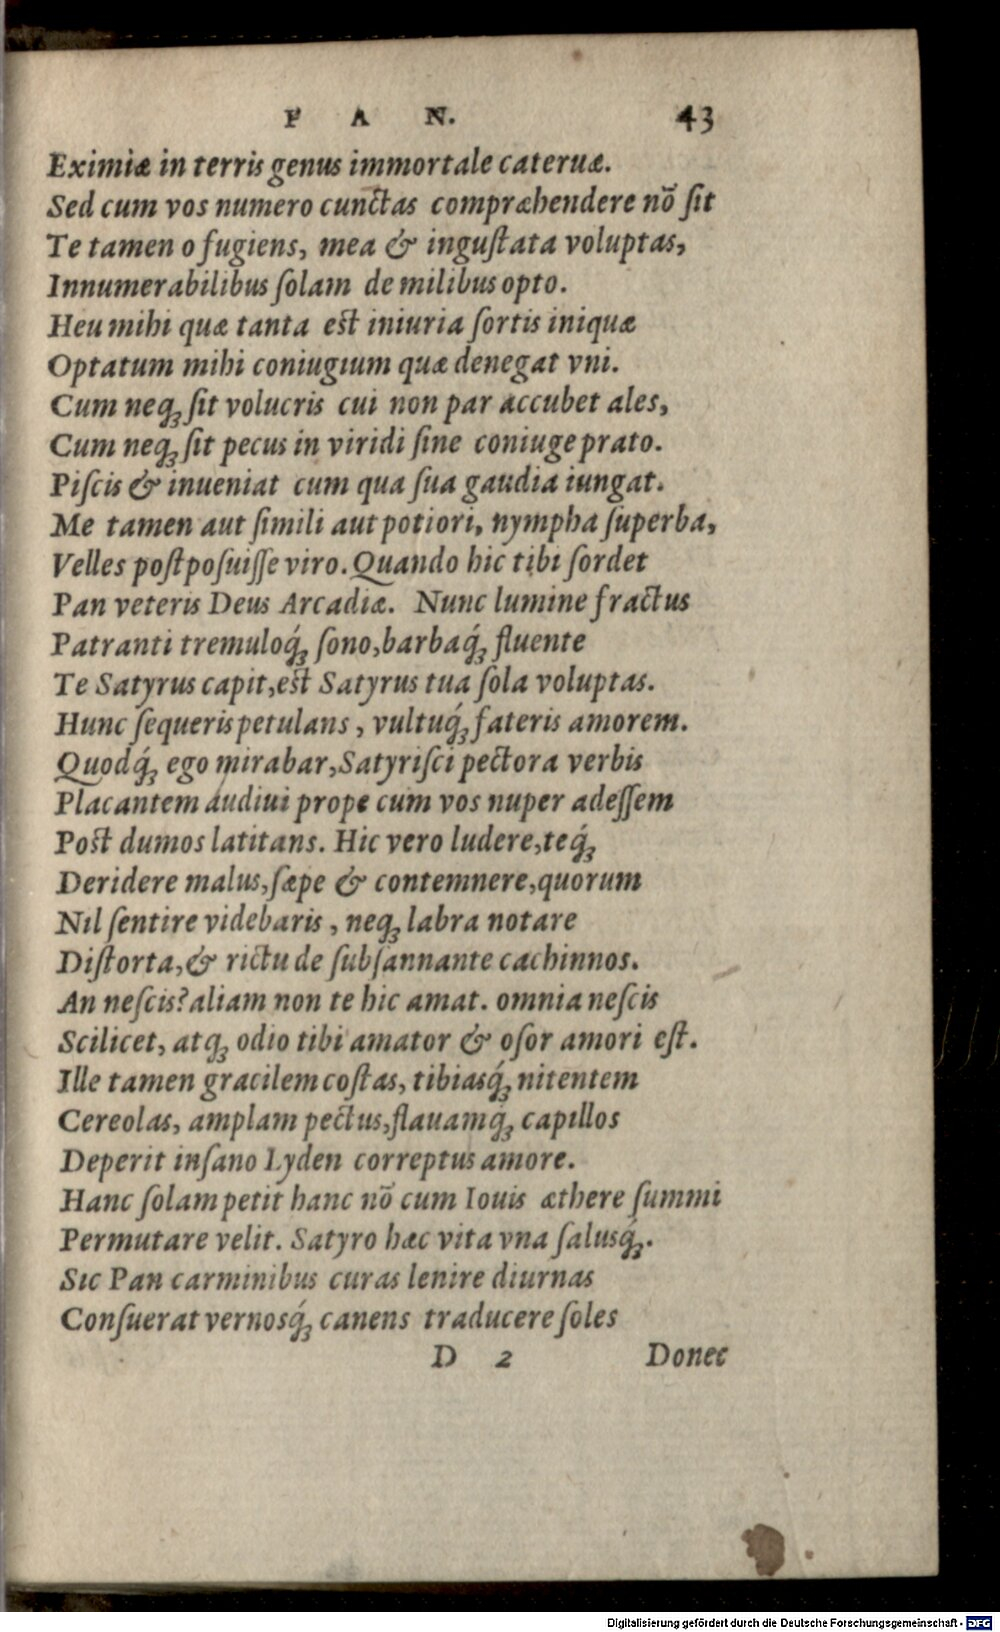 P A N. 43
Eximiæ in terris genus immortale cateruæ.
Sed cum vos numero cunctas compræhendere nõ ſit
Te tamen o fugiens, mea & inguſtata voluptas,
Innumerabilibus ſolam de milibus opto.
Heu mihi quæ tanta est iniuria ſortis iniquæ
Optatum mihi coniugium quæ denegat vni.
Cum neqꝫ ſit volucris cui non par accubet ales,
Cum neqꝫ ſit pecus in viridi ſine coniuge prato.
Piſcis & inueniat cum qua ſua gaudia iungat.
Me tamen aut ſimili aut potiori, nympha ſuperba,
Velles poſtpoſuiſſe viro. Quando hic tibi ſordet
Pan veteris Deus Arcadiæ. Nunc lumine fractus
Patranti tremuloq́ꝫ ſono, barbaq́ꝫ fluente
Te Satyrus capit, est Satyrus tua ſola voluptas.
Hunc ſequeris petulans, vultuq́ꝫ fateris amorem.
Quodq́ꝫ ego mirabar, Satyriſci pectora verbis
Placantem audiui prope cum vos nuper adeſſem
Post dumos latitans. Hic vero ludere, teq́ꝫ
Deridere malus, ſæpe & contemnere, quorum
Nil ſentire videbaris, neqꝫ labra notare
Diſtorta, & rictu de ſubſannante cachinnos.
An neſcis? aliam non te hic amat. omnia neſcis
Scilicet, atqꝫ odio tibi amator & oſor amori eſt.
Ille tamen gracilem coſtas, tibiasq́ꝫ nitentem
Cereolas, amplam pectus, flauamq́ꝫ capillos
Deperit inſano Lyden correptus amore.
Hanc ſolam petit hanc nõ cum Iouis æthere ſummi
Permutare velit. Satyro hæc vita vna ſalusq́ꝫ.
Sic Pan carminibus curas lenire diurnas
Conſuerat vernosq́ꝫ canens traducere ſoles
D 2 Donec
Digitalisierung gefördert durch die Deutsche Forschungsgemeinschaft - DFG